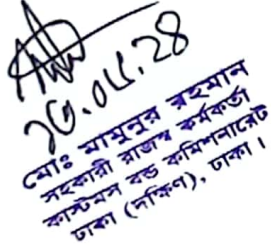 ২০.০৫.২৪
মোঃ মামুনুর রহমান
সহকারী রাজস্ব কর্মকর্তা
কাস্টমস বন্ড কমিশনারেট
ঢাকা (দক্ষিণ), ঢাকা।